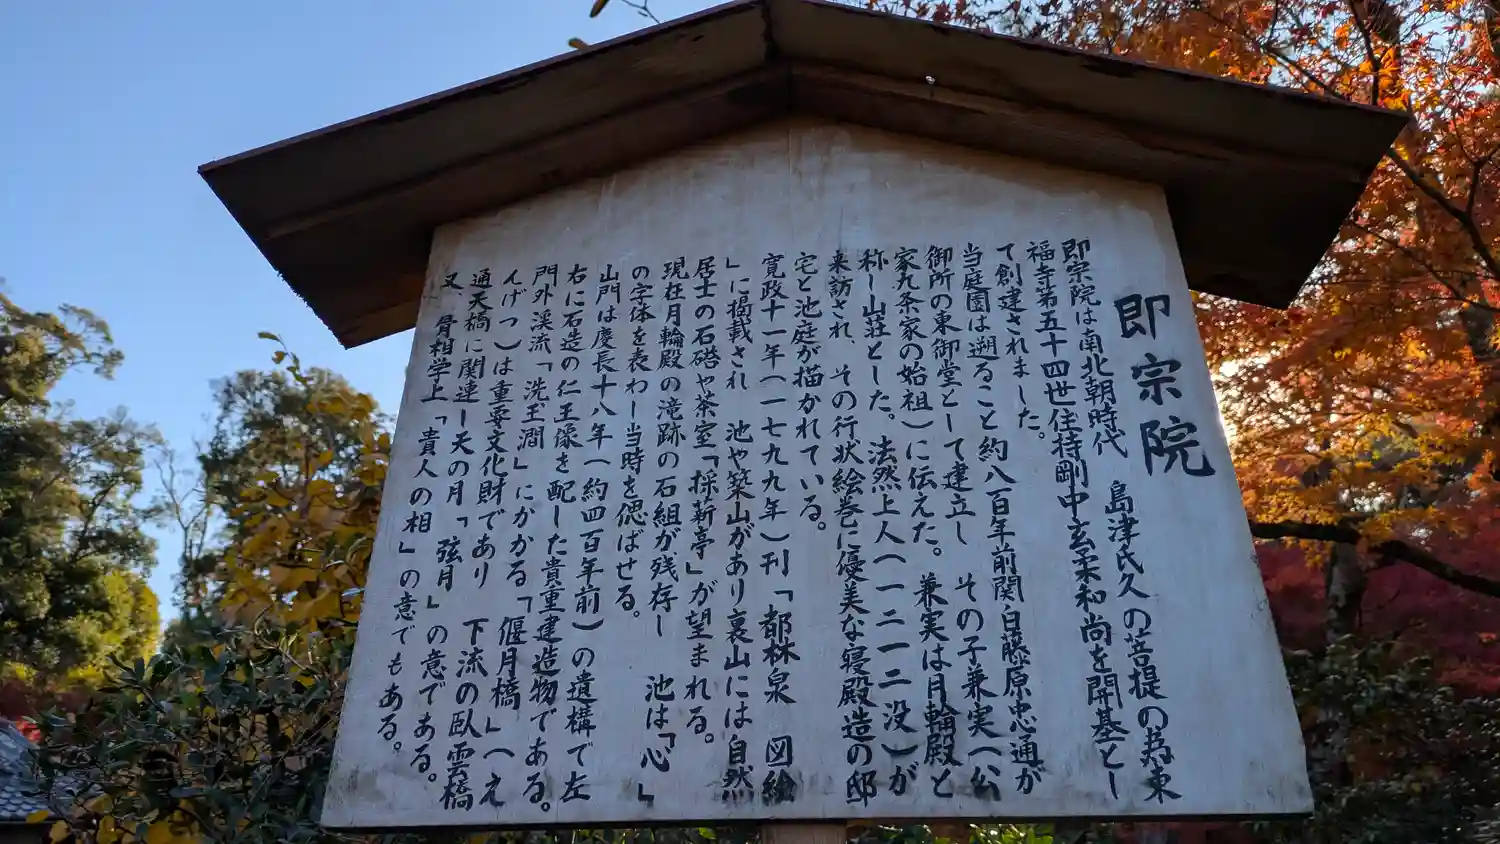 即宗院
即宗院は南北朝時代　島津氏久の菩提の為東
福寺第五十四世住持剛中玄柔和尚を開基とし
て創建されました。
当庭園は遡ること約八百年前関白藤原忠通が
御所の東御堂として建立し　その子兼実（公
家九条家の始祖）に伝えた。兼実は月輪殿と
称し山荘とした。法然上人（一二一二没）が
来訪され、その行状絵巻に優美な寝殿造の邸
宅と池庭が描かれている。
寛政十一年（一七九九年）刊「都林泉　図絵
」に掲載され　池や築山があり裏山には自然
居士の石碴や茶室「採薪亭」が望まれる。
現在月輪殿の滝跡の石組が残存し　池は「心」
の字体を表わし当時を偲ばせる。
山門は慶長十八年（約四百年前）の遺構で左
右に石造の仁王像を配した貴重建造物である。
門外渓流「洗玉澗」にかかる「偃月橋」（え
んげつ）は重要文化財であり　下流の臥雲橋
通天橋に関連し天の月「弦月」の意である。
又、骨相学上「貴人の相」の意でもある。